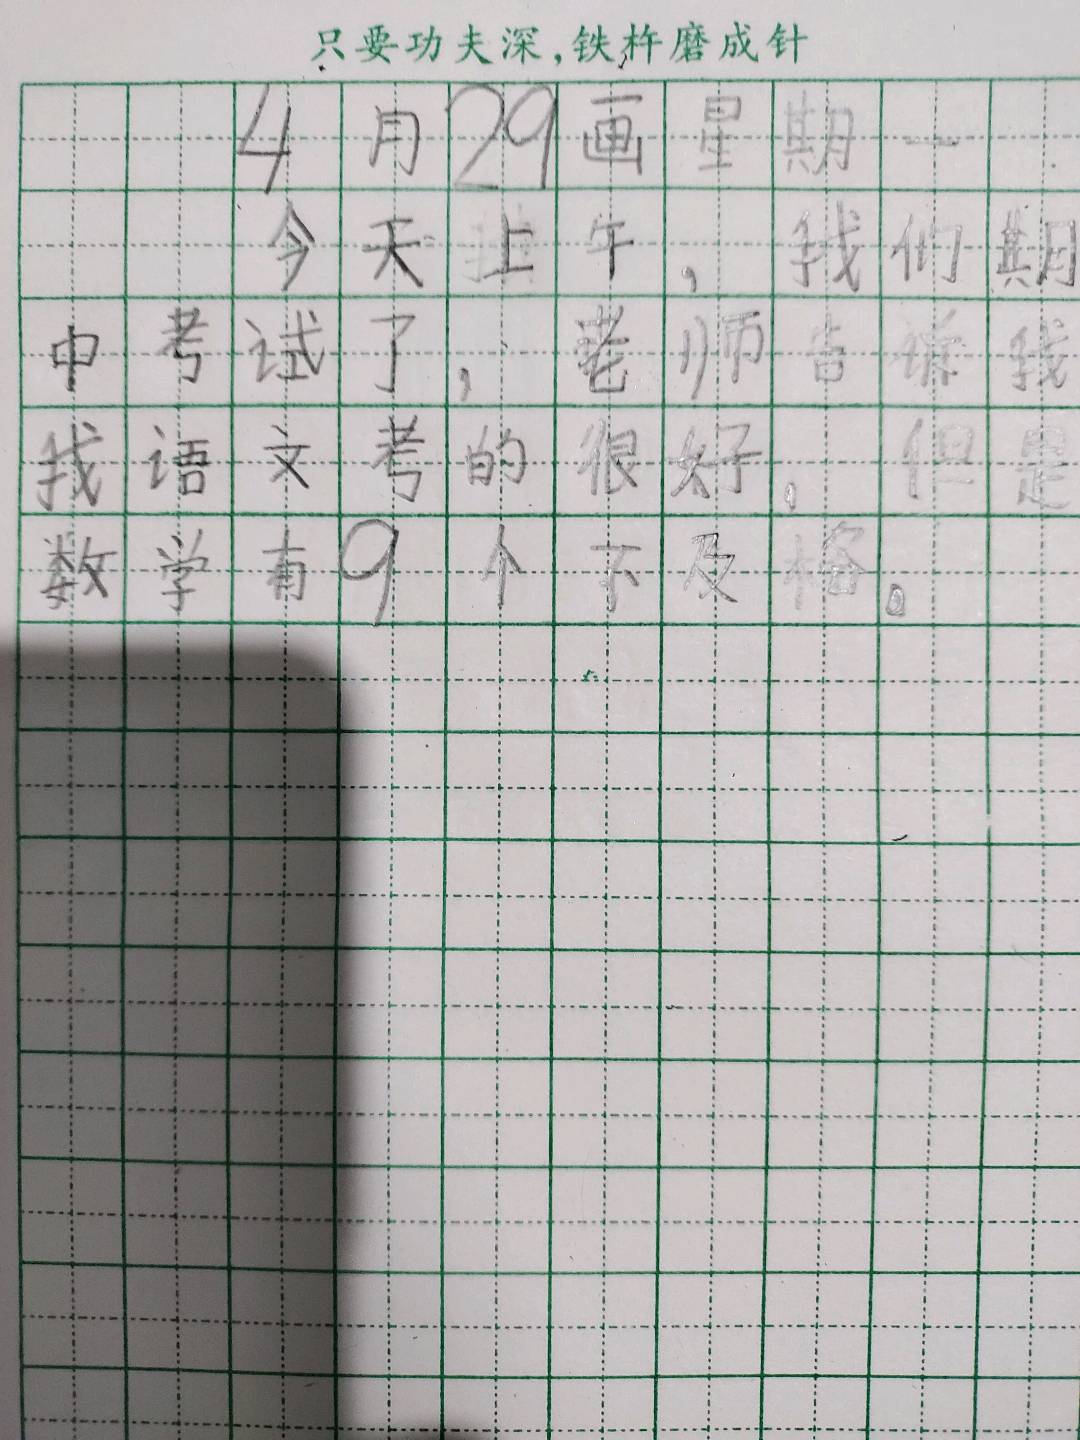 只要功夫深,铁杵磨成针
4月29画星期一
今天上午,我们期
中考试了,老师告诉我
我语文考的很好,但是
数学有9个不及格。